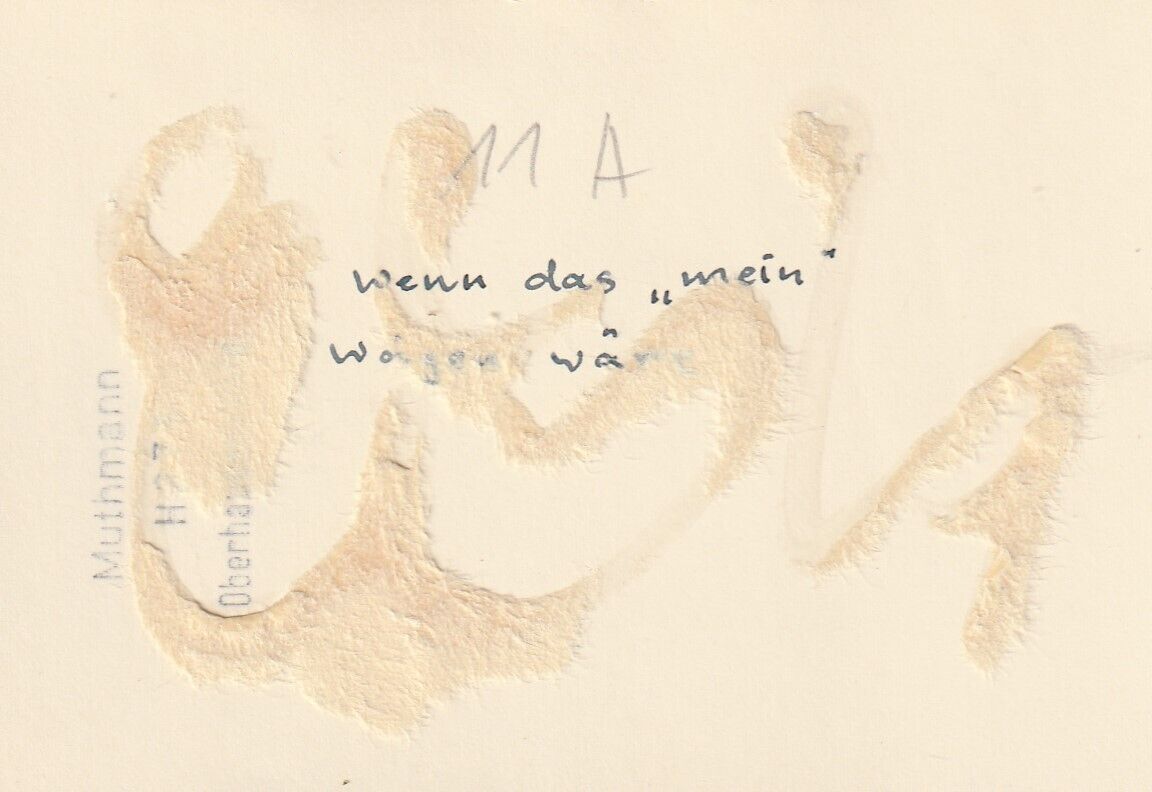 11 A
wenn das „mein“
Wagen wäre
Muthmann
H 27
Oberhau